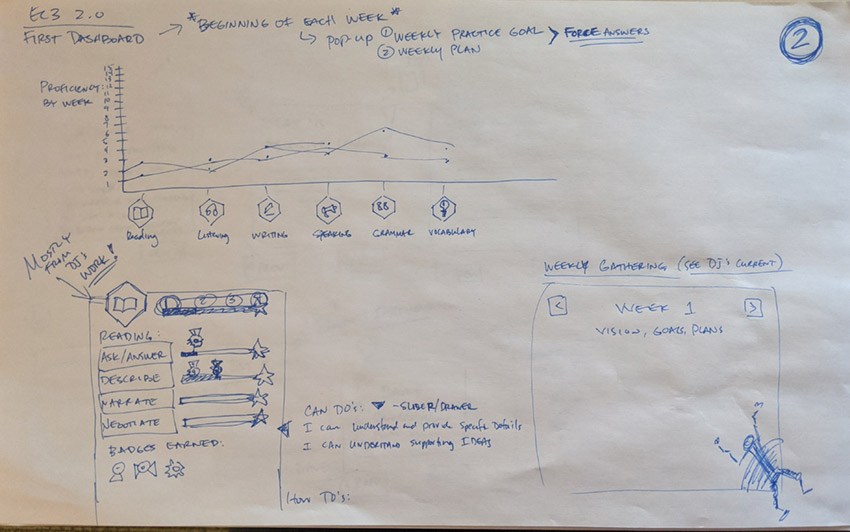 EC3 2.0
FIRST DASHBOARD → *BEGINNING OF EACH WEEK*
↳ POP-UP ① WEEKLY PRACTICE GOAL > FORCE ANSWERS
② WEEKLY PLAN
2
PROFICIENCY:
BY WEEK
Reading Listening WRITING SPEAKING GRAMMAR VOCABULARY
MOSTLY
FROM DJ's
WORK!
1 2 3
READING:
ASK/ANSWER
DESCRIBE
NARRATE
NEGOTIATE
BADGES EARNED:
CAN DO'S: ▼ -SLIDER/DRAWER
I can understand and provide specific details
I CAN UNDERSTAND supporting IDEAS
HOW TO'S:
WEEKLY GATHERING (SEE DJ'S CURRENT)
< WEEK 1 >
VISION, GOALS, PLANS